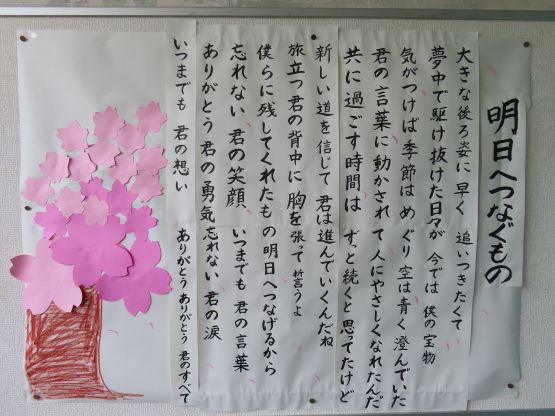 明日へつなぐもの
大きな後ろ姿に早く 追いつきたくて
夢中で駆け抜けた日々が 今では 僕の宝物
気がつけば季節はめぐり 空は青く 澄んでいた
君の言葉に動かされて 人にやさしくなれたんだ
共に過ごす時間は ずっと続くと思ってたけど
新しい道を信じて 君は進んでいくんだね
旅立つ君の背中に 胸を張って 誓うよ
僕らに残してくれたもの明日へつなげるから
忘れない 君の笑顔 いつまでも 君の言葉
ありがとう 君の勇気 忘れない 君の涙
いつまでも 君の想い ありがとう ありがとう 君のすべて